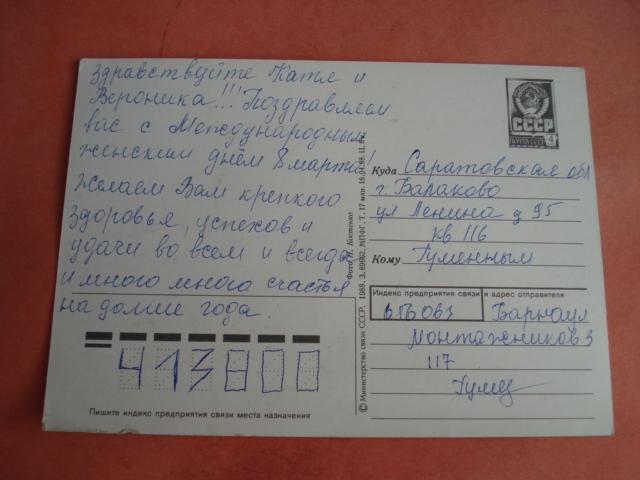 Здравствуйте Катя и
Вероника!!! Поздравляем
вас с Международным
женским днём 8 марта!
Желаем Вам крепкого
здоровья, успехов и
удачи во всем и всегда
и много много счастья
на долгие года.
ПОЧТА СССР
4
СССР
Куда Саратовская обл
г. Балаково
ул Ленина д 95
кв 116
Кому Гуменным
Индекс предприятия связи и адрес отправителя
656063 Барнаул
Монтажников 3
117
413800
Пишите индекс предприятия связи места назначения
Фото Н. Костенко
© Министерство связи СССР. 1988.